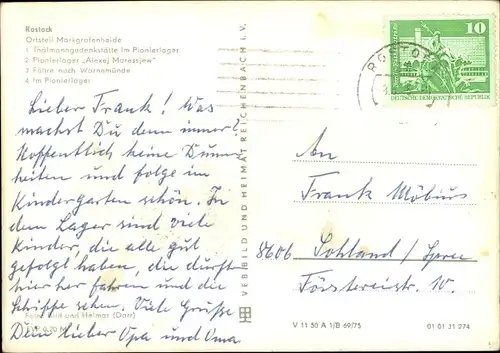 Rostock
Ortsteil Markgrafenheide
1 Thälmanngedenkstätte im Pionierlager
2 Pionierlager „Alexej Maressjew"
3 Fähre nach Warnemünde
4 Im Pionierlager
Lieber Frank! Was
machst Du denn immer?
Hoffentlich keine Dumm-
heiten und folge im
Kindergarten schön. In
dem Lager sind viele
Kinder, die alle gut
gefolgt haben, die durften
hierher fahren und die
Schiffe sehen. Viele Grüße
Dein lieber Opa und Oma
Foto: Bild und Heimat (Darr)
EVP 0,20 M
VEB BILD UND HEIMAT REICHENBACH i. V.
10
DEUTSCHE DEMOKRATISCHE REPUBLIK
An
Frank Möbius
8606 Sohland/Spree
Förstereistr. 10.
V 11 50 A 1/B 69/75
01 01 31 274